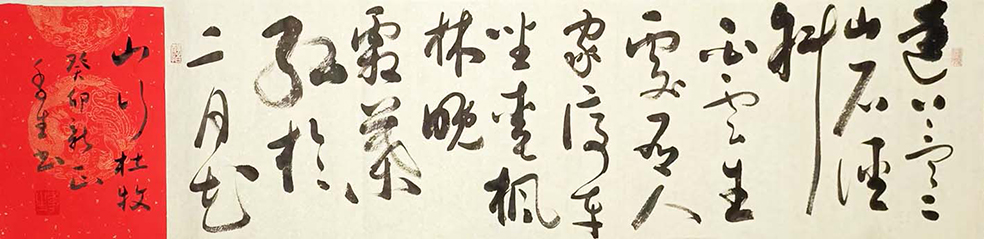 遠上寒
山石徑
斜
白雲生
處有人
家停車
坐愛楓
林晚
霜葉
紅於
二月花
山行 杜牧
癸卯新正
生书